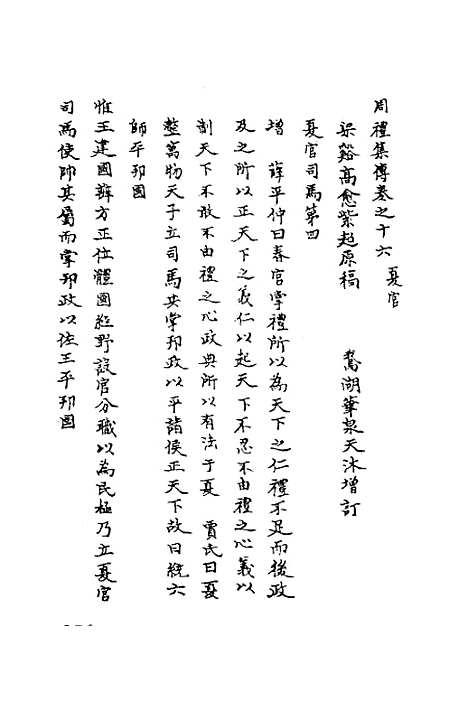 周禮集傳卷之十六 夏官
梁谿高愈紫超原稿 鵞湖華泉天沐增訂
夏官司馬第四
增 薛平仲曰春官掌禮所以為天下之仁禮不足而後政
及之所以正天下之義仁以起天下不忍不由禮之心義以
制天下不敢不由禮之心政典所以有法于夏 賈氏曰夏
整萬物天子立司馬共掌邦政以平諸侯正天下故曰統六
師平邦國
惟王建國辨方正位體國經野設官分職以為民極乃立夏官
司馬使帥其屬而掌邦政以佐王平邦國